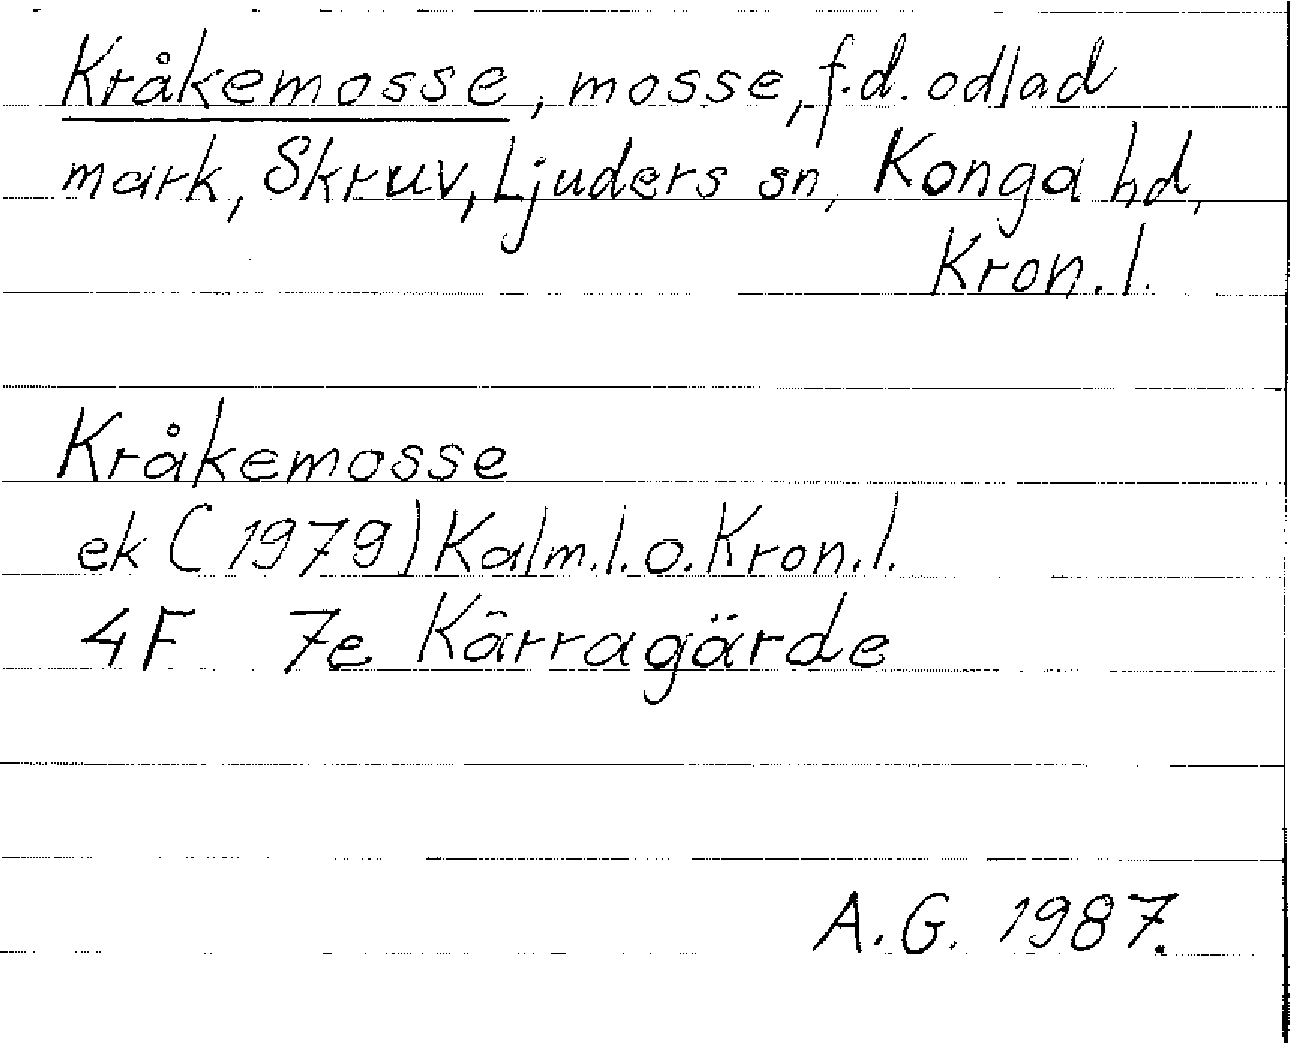 Kråkemosse, mosse, f.d. odlad
mark, Skruv, Ljuders sn, Konga hd,
Kron.l.
Kråkemosse
ek (1979) Kalm.l. o. Kron.l.
4F 7e Kärragärde
A.G. 1987.